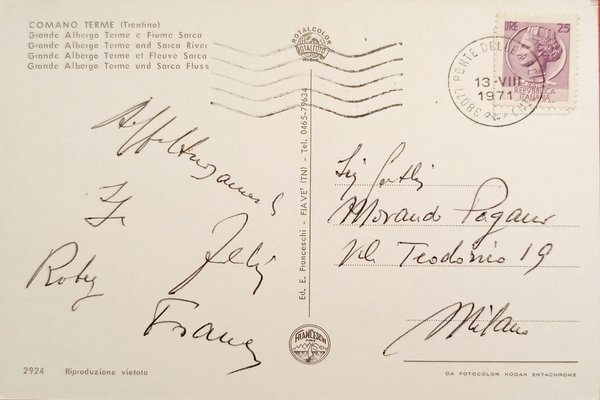 COMANO TERME (Trentino)
Grande Albergo Terme e Fiume Sarca
Grande Albergo Terme and Sarca River
Grande Albergo Terme et Fleuve Sarca
Grande Albergo Terme und Sarca Fluss
ROTALCOLOR
ROTALFOTO
LIRE 25
REPVBBLICA
ITALIANA
38077 PONTE DELLE
13-VIII
1971
Affettuosamente
Roby
Franco
Ed. E. Franceschi - FIAVE' (TN) - Tel. 0465-79634
Morando Pagani
Vle Teodorico 19
Milano
FRANCESCHI
2924 Riproduzione vietata
DA FOTOCOLOR KODAK EKTACHROME